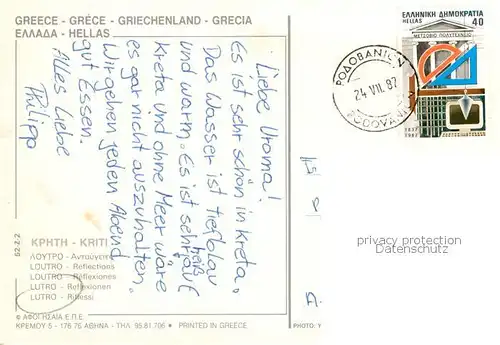 GREECE - GRÉCE - GRIECHENLAND - GRECIA
ΕΛΛΑΔΑ - HELLAS
Liebe Uroma!
Es ist sehr schön in Kreta.
Das Wasser ist tiefblau
und warm. Es ist sehr heiß auf
Kreta und ohne Meer wäre
es gar nicht auszuhalten.
Wir gehen jeden Abend
gut Essen.
Alles Liebe
Philipp
ΕΛΛΗΝΙΚΗ ΔΗΜΟΚΡΑΤΙΑ
HELLAS 40
ΜΕΤΣΟΒΙΟ ΠΟΛΥΤΕΧΝΕΙΟ
1837
1987
24 VII. 87
62-2-2
ΚΡΗΤΗ - KRITI
ΛΟΥΤΡΟ - Ανταύγειες
LOUTRO - Reflections
LOUTRO - Réflexiones
LOUTRO - Reflexionen
LUTRO - Riflessi
© ΑΦΟΙ ΗΣΑΙΑ Ε.Π.Ε.
ΚΡΕΜΟΥ 5 - 176 76 ΑΘΗΝΑ - ΤΗΛ. 95.81.706 • PRINTED IN GREECE
PHOTO: Y
privacy protection
Datenschutz